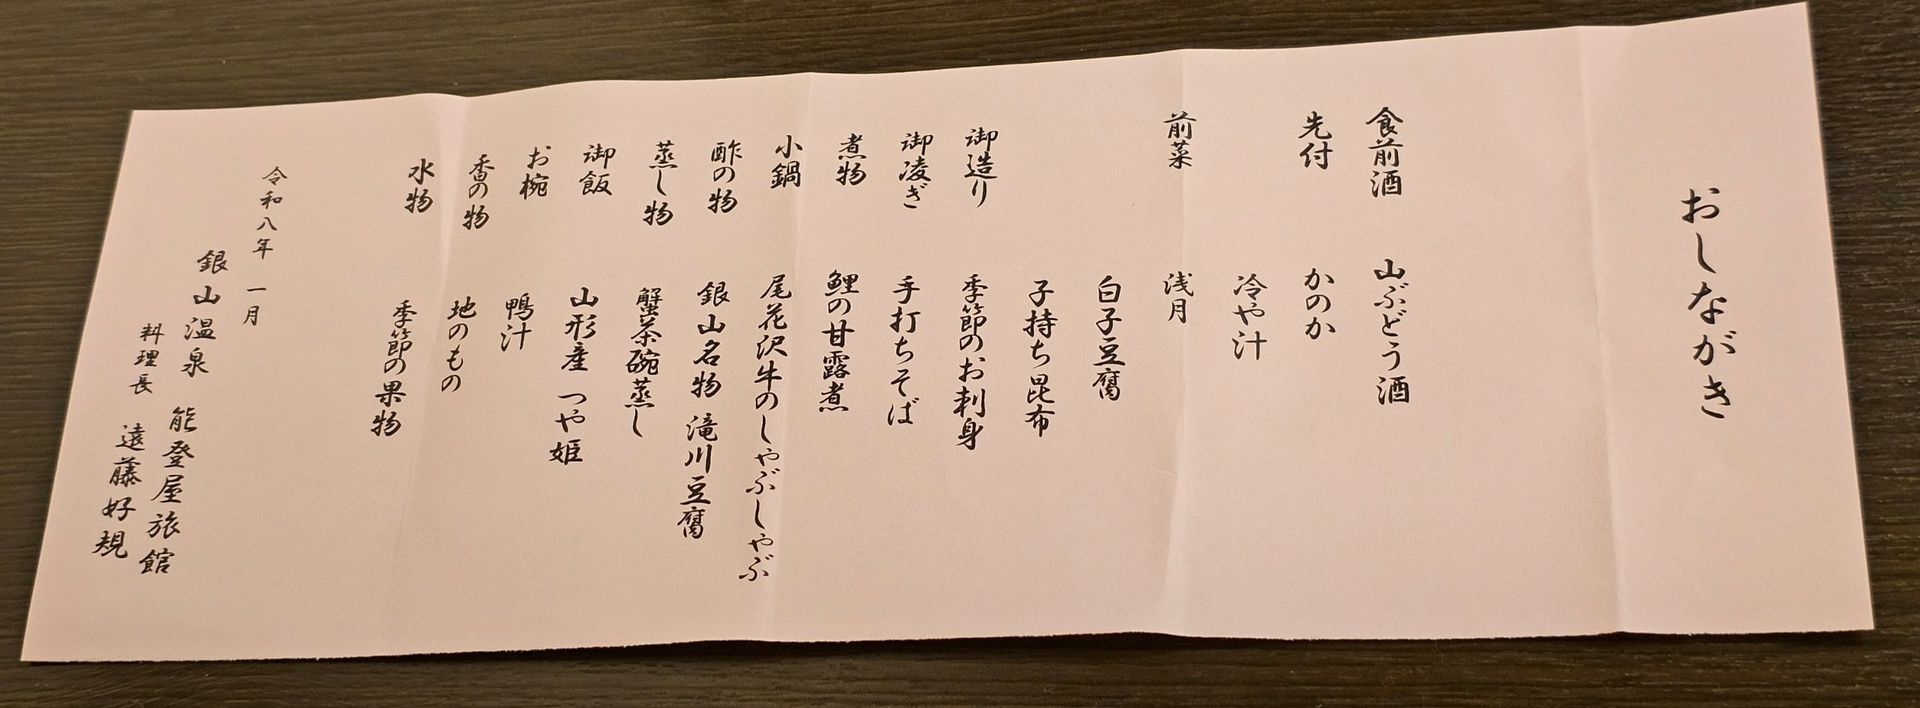 おしながき
食前酒 山ぶどう酒
先付 かのか
冷や汁
前菜 浅月
白子豆腐
子持ち昆布
御造り 季節のお刺身
御凌ぎ 手打ちそば
煮物 鯉の甘露煮
小鍋 尾花沢牛のしゃぶしゃぶ
酢の物 銀山名物 滝川豆腐
蒸し物 蟹茶碗蒸し
御飯 山形産 つや姫
お椀 鴨汁
香の物 地のもの
水物 季節の果物
令和八年 一月
銀山温泉 能登屋旅館
料理長 遠藤好規